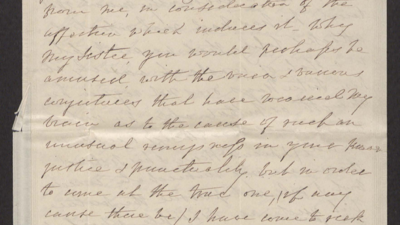 from me, in consideration of the
affection which induces it. Why
my Justice you would perhaps be
amused with the various
conjectures that have my
brain as to the cause of such an
unusual in your
justice & punctuality, but in order
to come at the true one, (if any
cause there be) I have come to